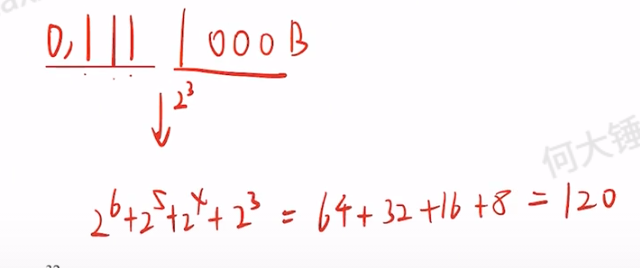 0,111 1000B
2³
2⁶+2⁵+2⁴+2³ = 64+32+16+8 = 120
何大锤